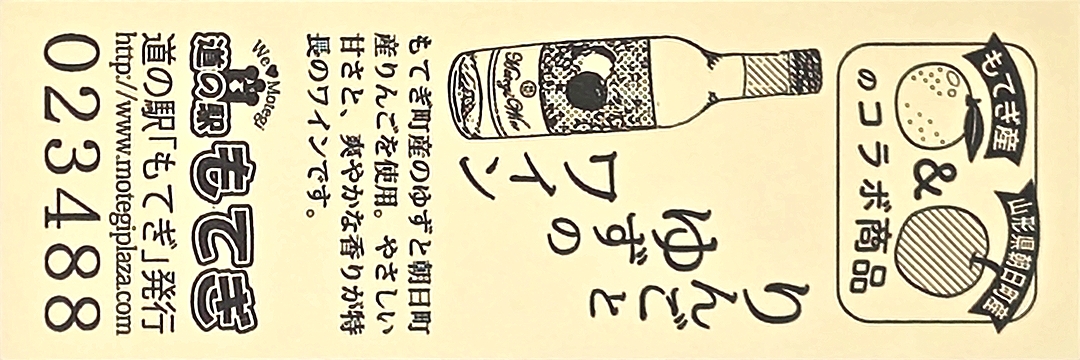 もてぎ産
&
山形県朝日町産
のコラボ商品
りんごと
ゆずの
ワイン
もてぎ町産のゆずと朝日町
産りんごを使用。やさしい
甘さと、爽やかな香りが特
長のワインです。
We♥Motegi
道の駅
もてぎ
道の駅「もてぎ」発行
http://www.motegiplaza.com
023488